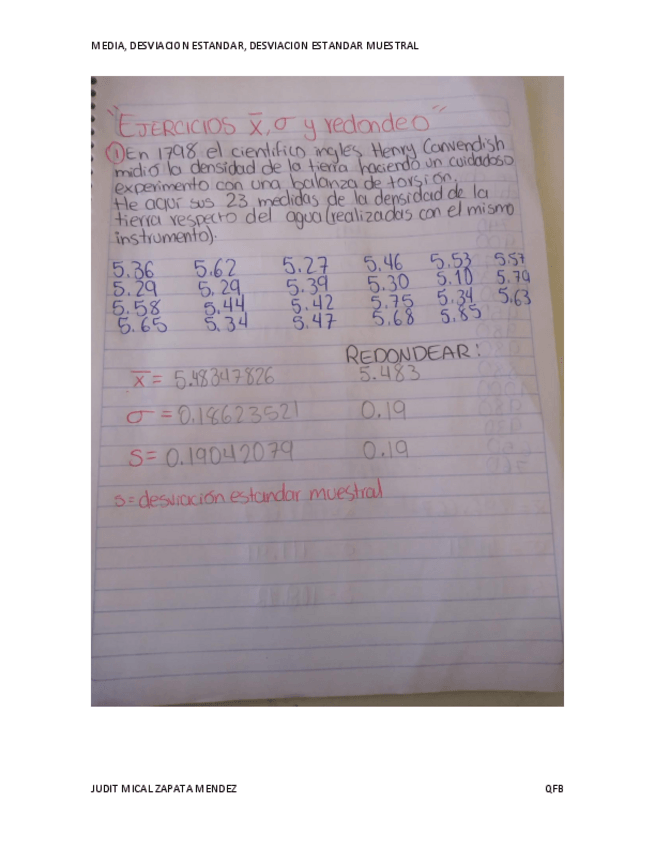 MEDIA, DESVIACION ESTANDAR, DESVIACION ESTANDAR MUESTRAL
"EJERCICIOS x̄, σ y redondeo"
① En 1798 el cientifico ingles Henry Canvendish
midió la densidad de la tierra haciendo un cuidadoso
experimento con una balanza de torsión.
He aquí sus 23 medidas de la densidad de la
tierra respecto del agua (realizadas con el mismo
instrumento).
5.36 5.62 5.27 5.46 5.53 5.57
5.29 5.29 5.39 5.30 5.10 5.79
5.58 5.44 5.42 5.75 5.34 5.63
5.65 5.34 5.47 5.68 5.85
REDONDEAR:
x̄ = 5.48347826 5.483
σ = 0.18623521 0.19
S = 0.19042079 0.19
s = desviación estandar muestral
JUDIT MICAL ZAPATA MENDEZ QFB